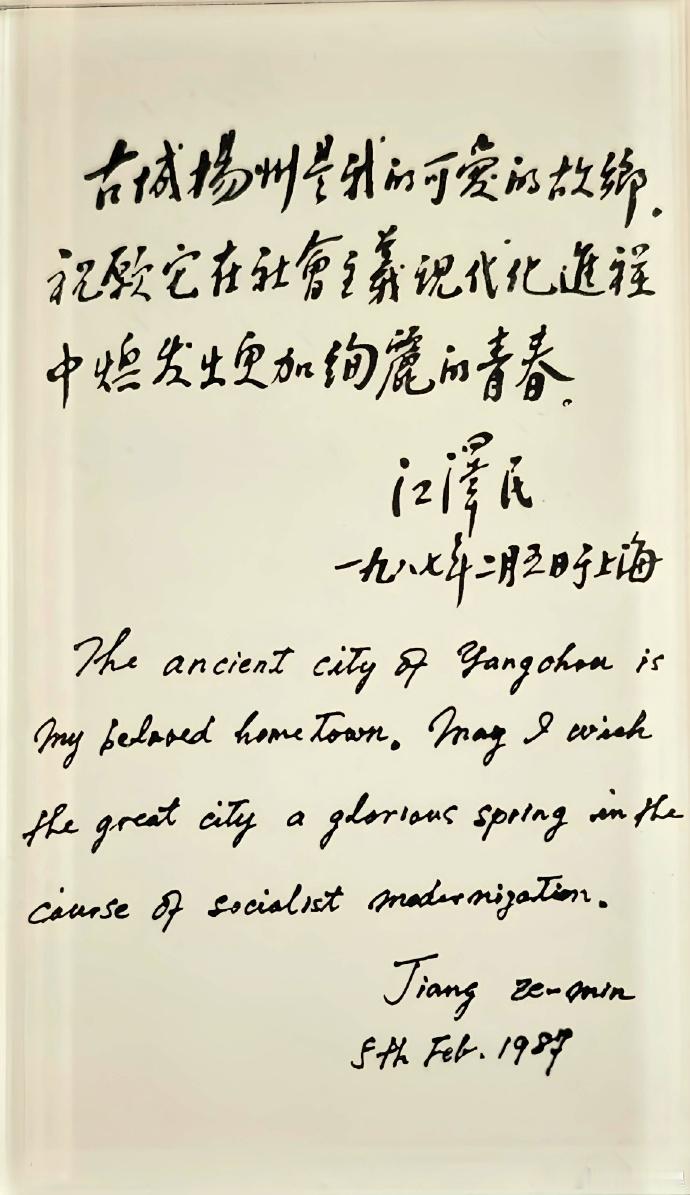 古城揚州是我的可愛的故鄉.
祝願它在社會主義現代化進程
中煥发出更加絢麗的青春。
江澤民
一九八七年二月五日于上海
The ancient city of Yangchou is
my beloved hometown. May I wish
the great city a glorious spring in the
course of socialist modernization.
Jiang Ze-min
5th Feb. 1987